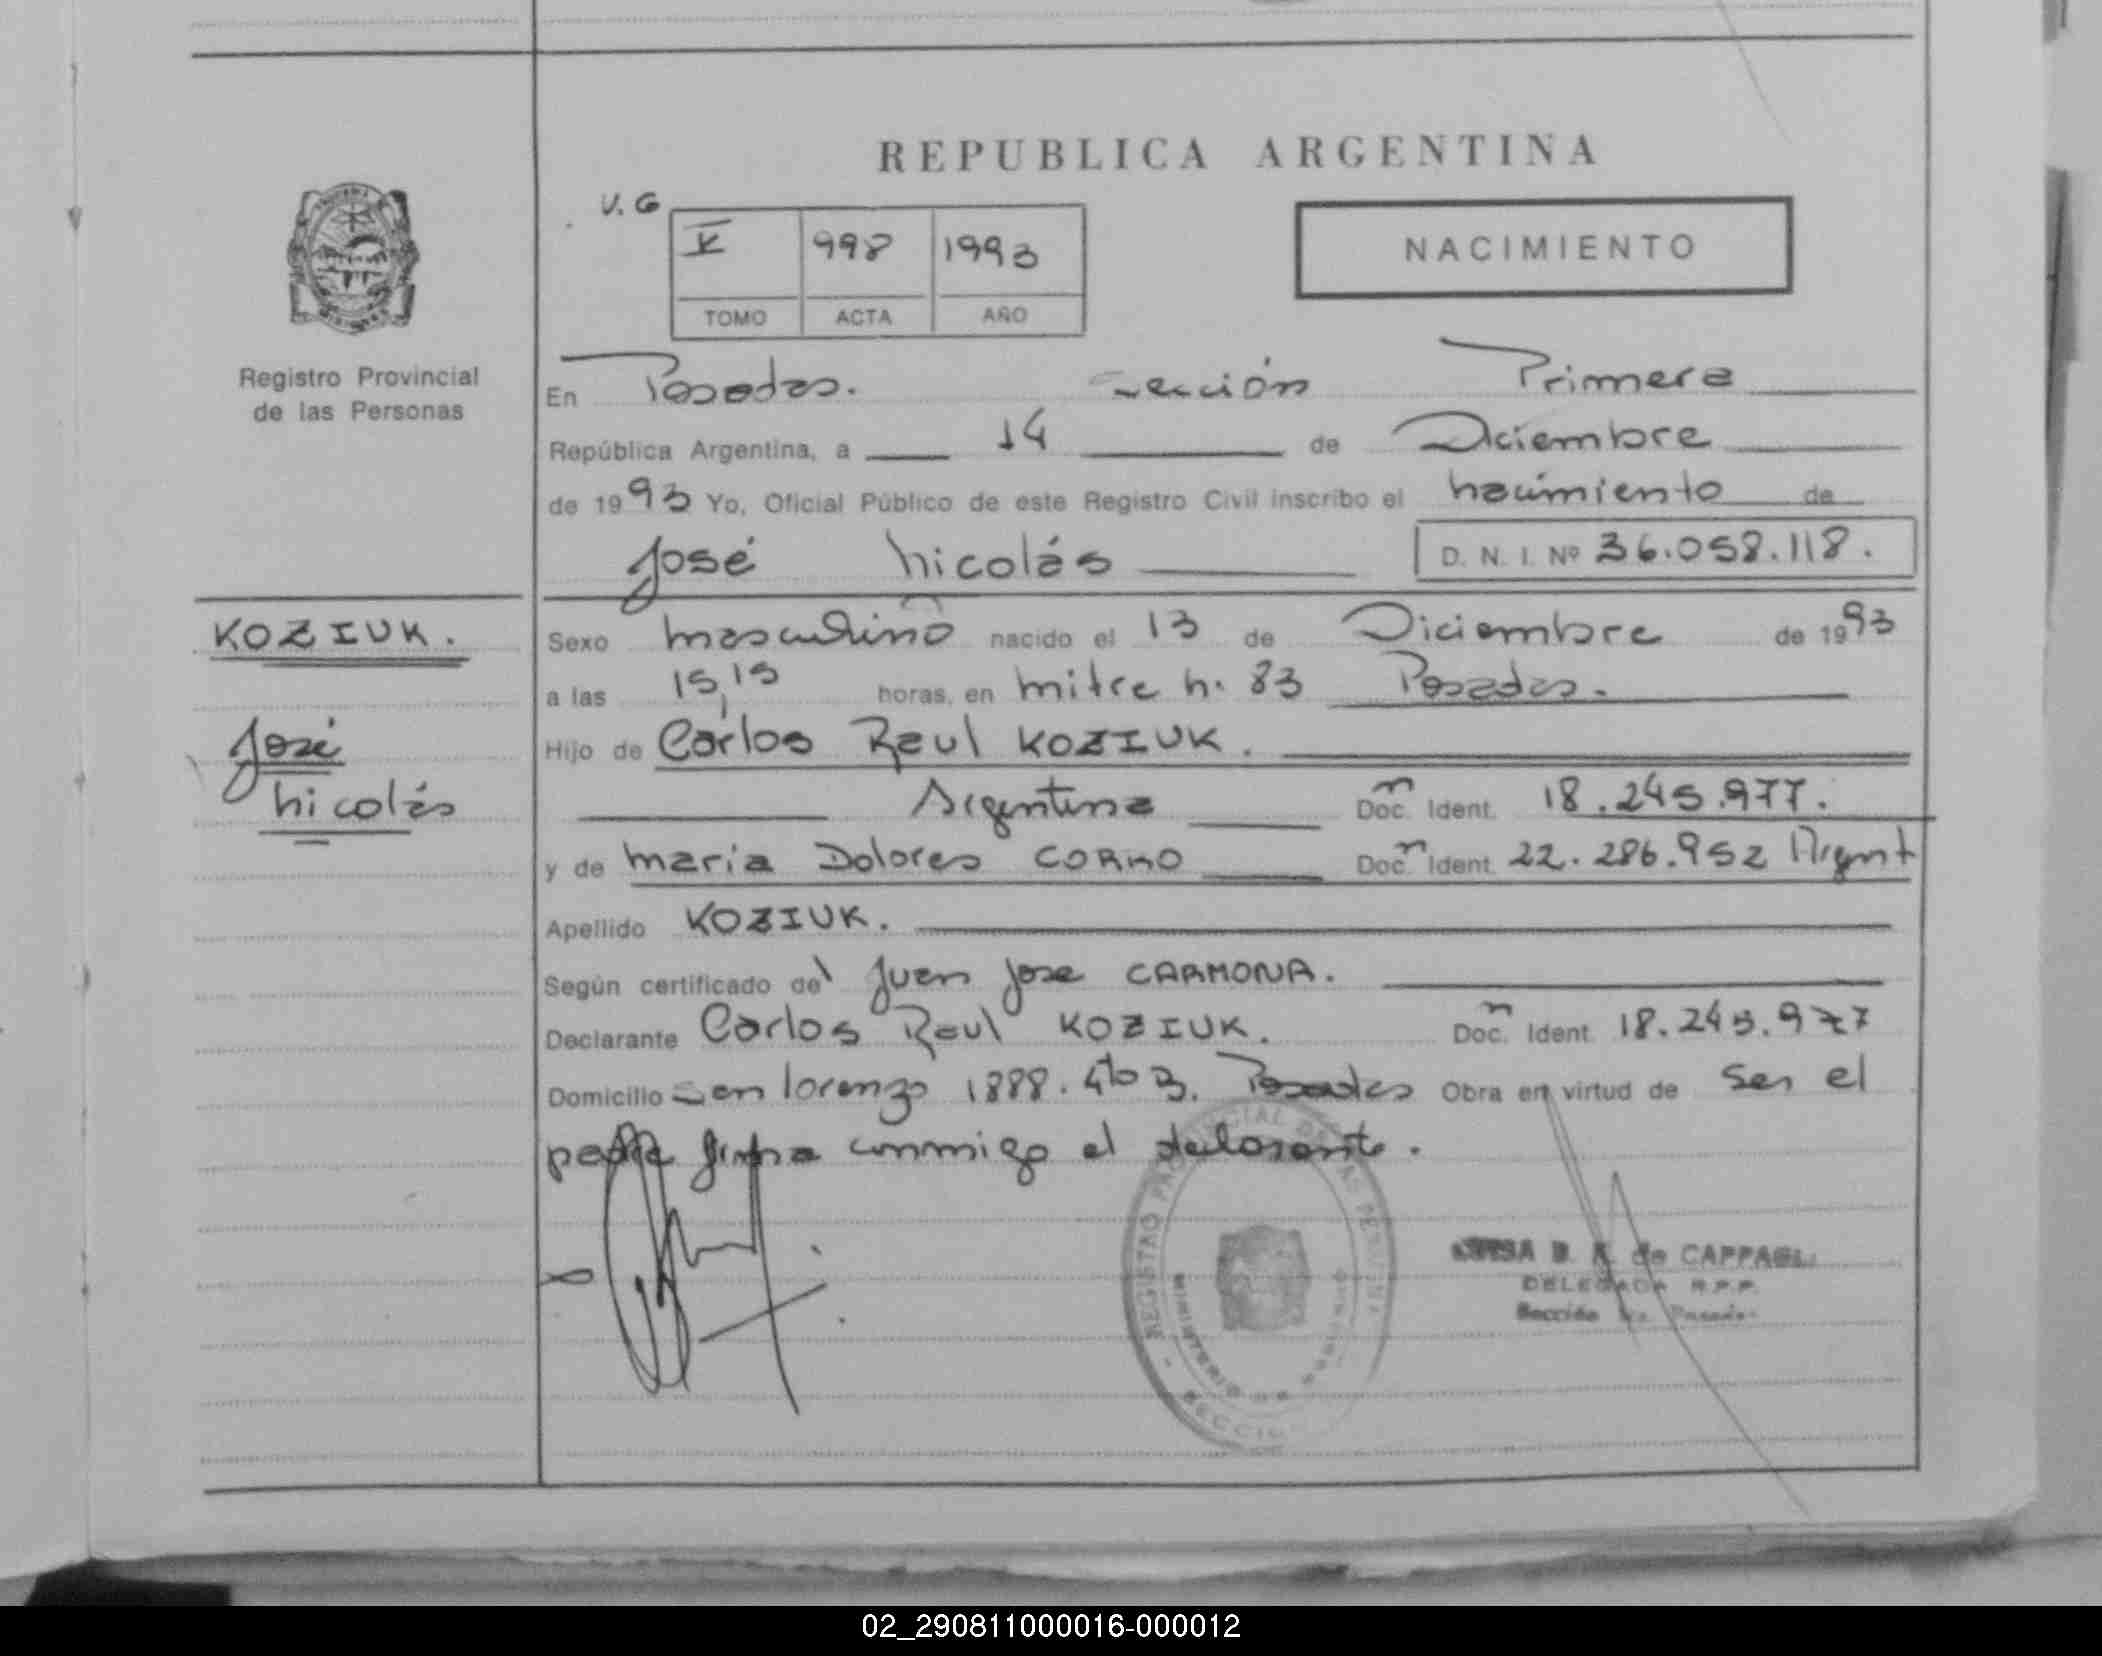 REPUBLICA ARGENTINA
V. G
V 998 1993
TOMO ACTA AÑO
NACIMIENTO
Registro Provincial
de las Personas
En Posadas. sección Primera
República Argentina, a 14 de Diciembre
de 1993 Yo, Oficial Público de este Registro Civil inscribo el nacimiento de
José Nicolás D. N. I. Nº 36.058.118.
KOZIUK.
José
Nicolás
Sexo masculino nacido el 13 de Diciembre de 1993
a las 15,15 horas, en mitre n. 83 Posadas.
Hijo de Carlos Raul KOZIUK.
Argentina Doc. Ident. 18.245.977.
y de maria Dolores CORRO Doc. Ident. 22.286.952 Argnt
Apellido KOZIUK.
Según certificado del Juan Jose CARMONA.
Declarante Carlos Raul KOZIUK. Doc. Ident. 18.245.977
Domicilio San lorenzo 1888. 4to B. Posadas Obra en virtud de ser el
padre firma conmigo el declarante.
REGISTRO PROVINCIAL DE LAS PERSONAS
MINISTERIO DE GOBIERNO
SECCIO
de CAPPAGLI
DELEGADA R.P.P.
Sección 1ra. Posadas
02_290811000016-000012